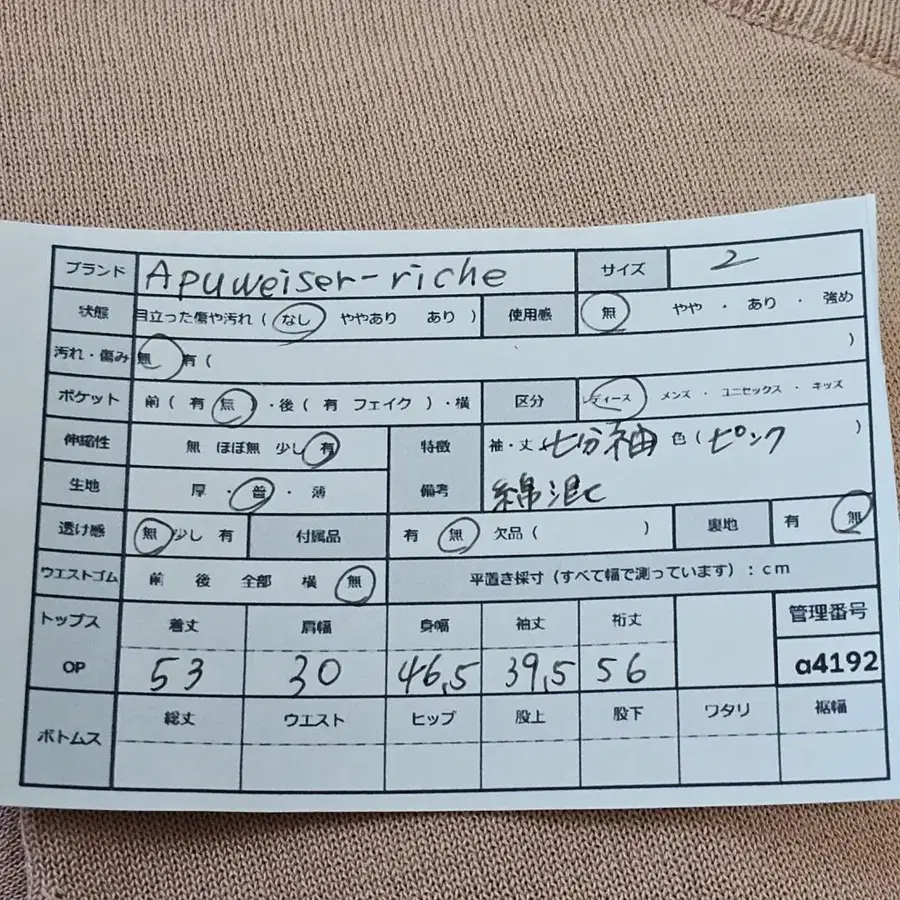 ブランド Apuweiser-riche サイズ 2
状態 目立った傷や汚れ ( なし ややあり あり ) 使用感 無 やや ・ あり ・ 強め
汚れ・傷み 無 有 ( )
ポケット 前 ( 有 無 ) ・後 ( 有 フェイク ) ・横 区分 レディース メンズ ・ ユニセックス ・ キッズ
伸縮性 無 ほぼ無 少し 有 特徴 袖・丈 七分袖 色 ( ピンク )
生地 厚 ・ 普 ・ 薄 備考 綿混
透け感 無 少し 有 付属品 有 無 欠品 ( ) 裏地 有 無
ウエストゴム 前 後 全部 横 無 平置き採寸 (すべて幅で測っています) : cm
トップス 着丈 肩幅 身幅 袖丈 裄丈 管理番号
OP 53 30 46,5 39,5 56 a4192
ボトムス 総丈 ウエスト ヒップ 股上 股下 ワタリ 裾幅